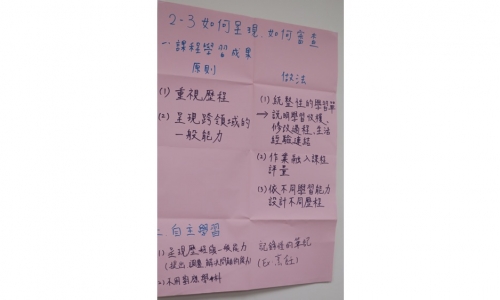 2-3 如何呈現、如何審查
一、課程學習成果
原則
(1) 重視歷程
(2) 呈現跨領域的
一般能力
做法
(1) 統整性的學習單
→ 說明學習收穫、
修改過程、生活
經驗連結
(2) 作業融入課程
評量
(3) 依不同學習能力
設計不同歷程
二、自主學習
(1) 呈現歷程與一般能力
(提出、調查、解決問題的能力)
(2) 不用對應學科
記錄性的筆記